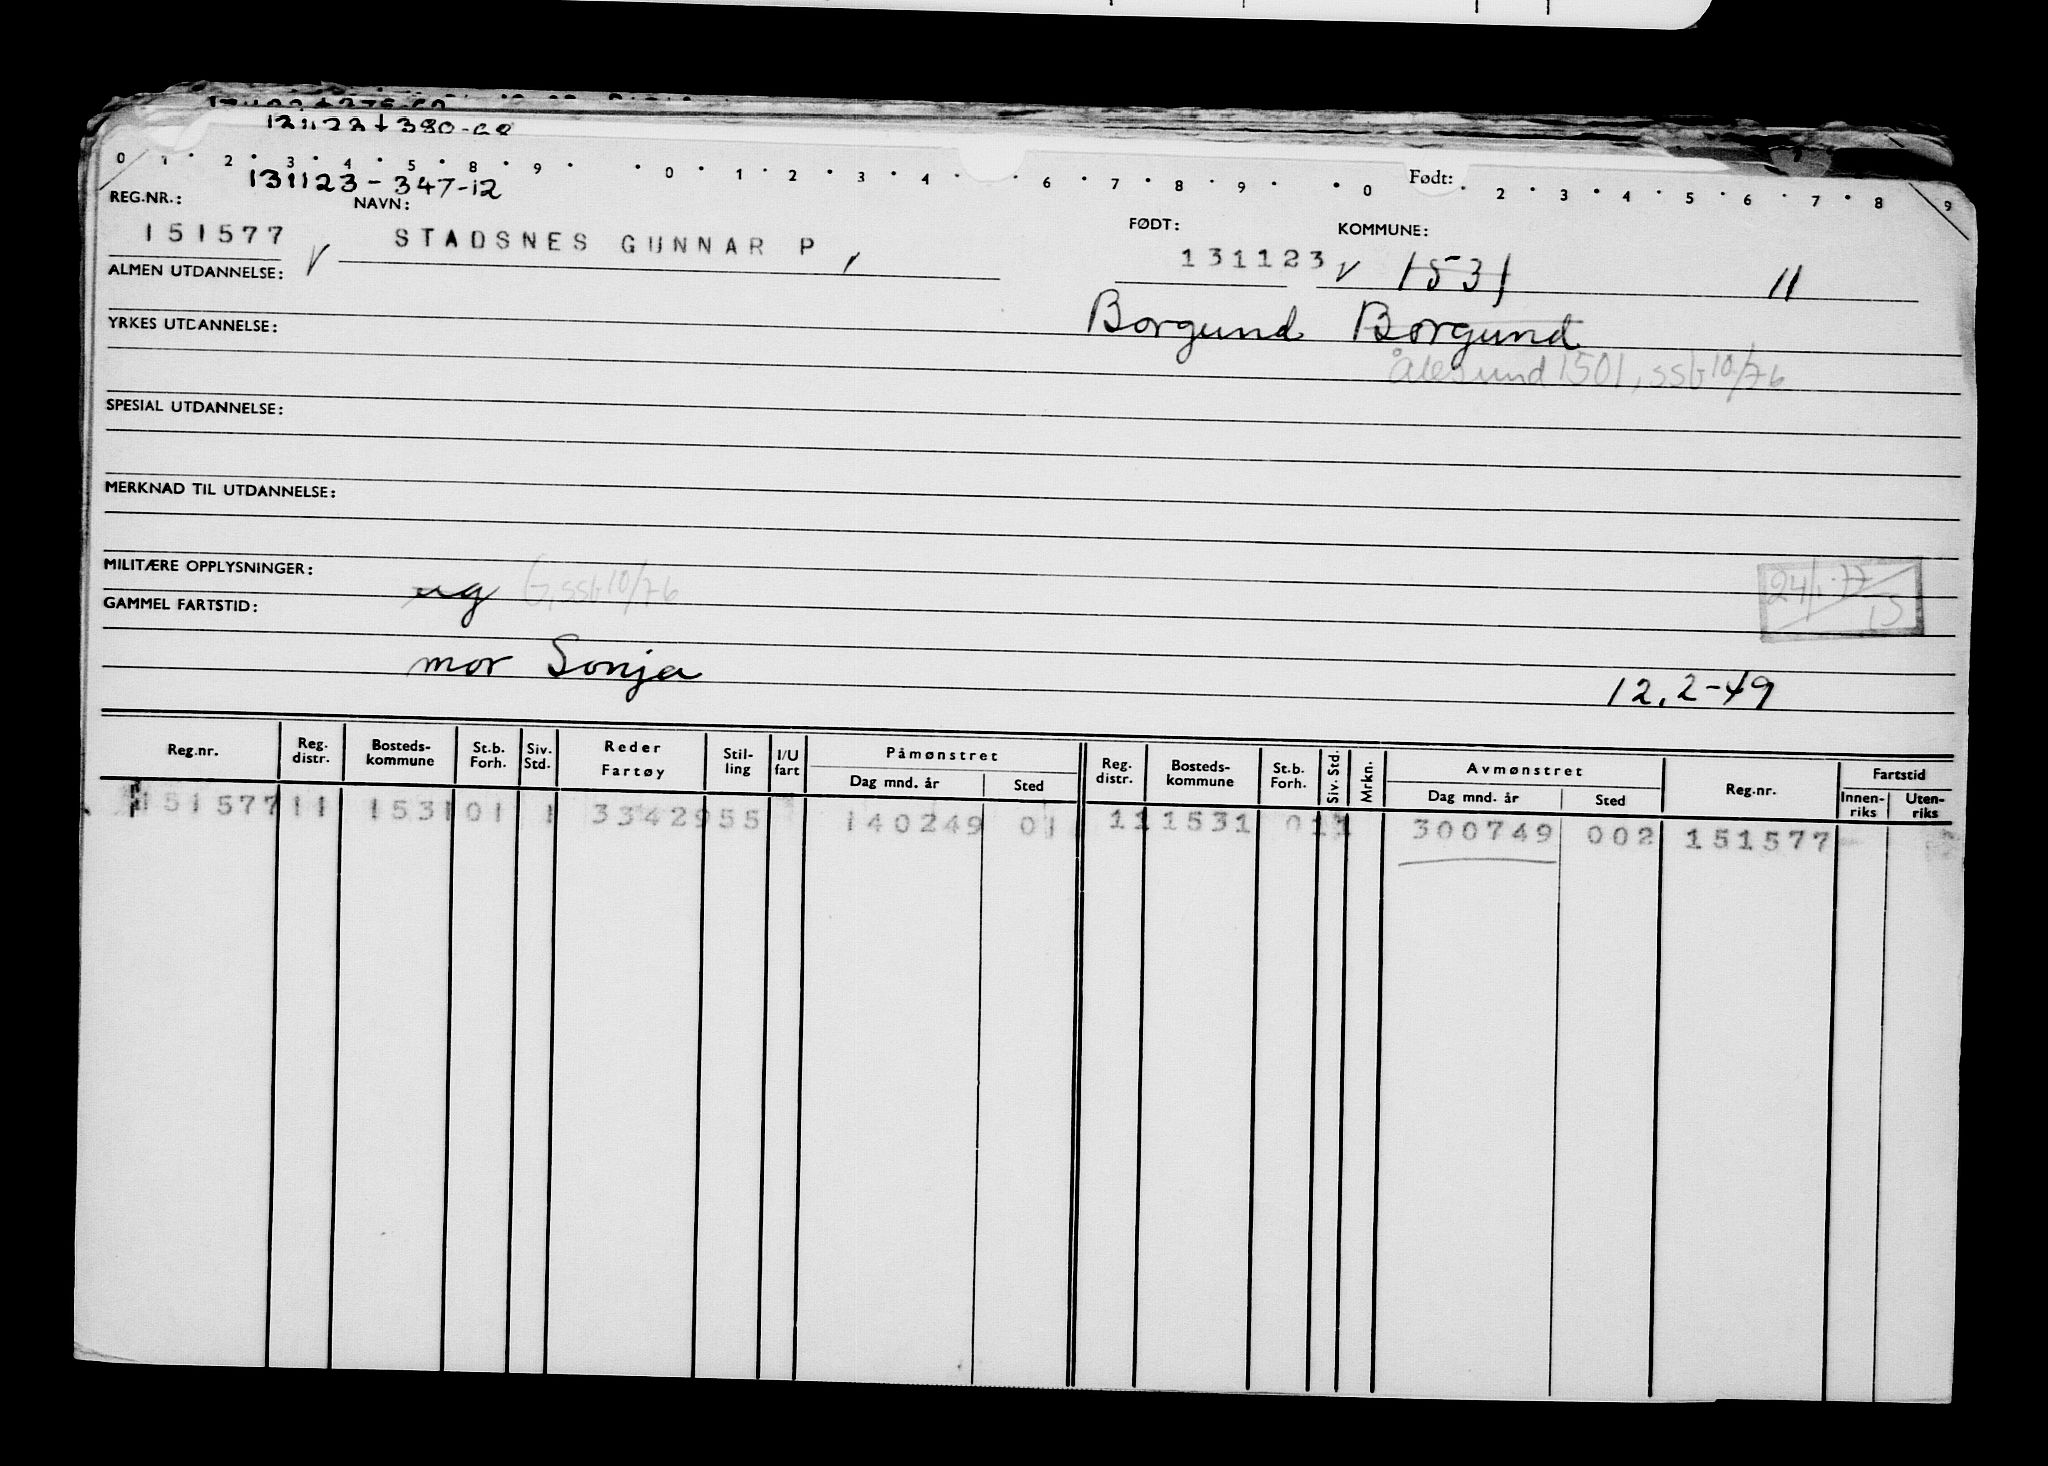 131123+380-68
0 1 2 3 4 5 8 9 0 1 2 3 4 6 7 8 9 0 Født: 2 3 4 5 6 7 8 9
131123-347-12
REG.NR.: NAVN: FØDT: KOMMUNE:
151577 V STADSNES GUNNAR P, 131123 V 1531 11
ALMEN UTDANNELSE:
Borgund Borgund
YRKES UTDANNELSE:
Ålesund 1501, ssb 10/76
SPESIAL UTDANNELSE:
MERKNAD TIL UTDANNELSE:
MILITÆRE OPPLYSNINGER:
ug G, ssb 10/76
GAMMEL FARTSTID:
mor Sonja
12.2-49
Reg.nr. Reg. distr. Bosteds-kommune St.b. Forh. Siv. Std. Reder Fartøy Stil-ling I/U fart Påmønstret Dag mnd. år Sted Reg. distr. Bosteds-kommune St.b. Forh. Siv. Std. Mrkn. Avmønstret Dag mnd. år Sted Reg.nr. Fartstid Innen-riks Uten-riks
151577 11 1531 01 1 33429 55 140249 01 11 1531 01 1 300749 002 151577